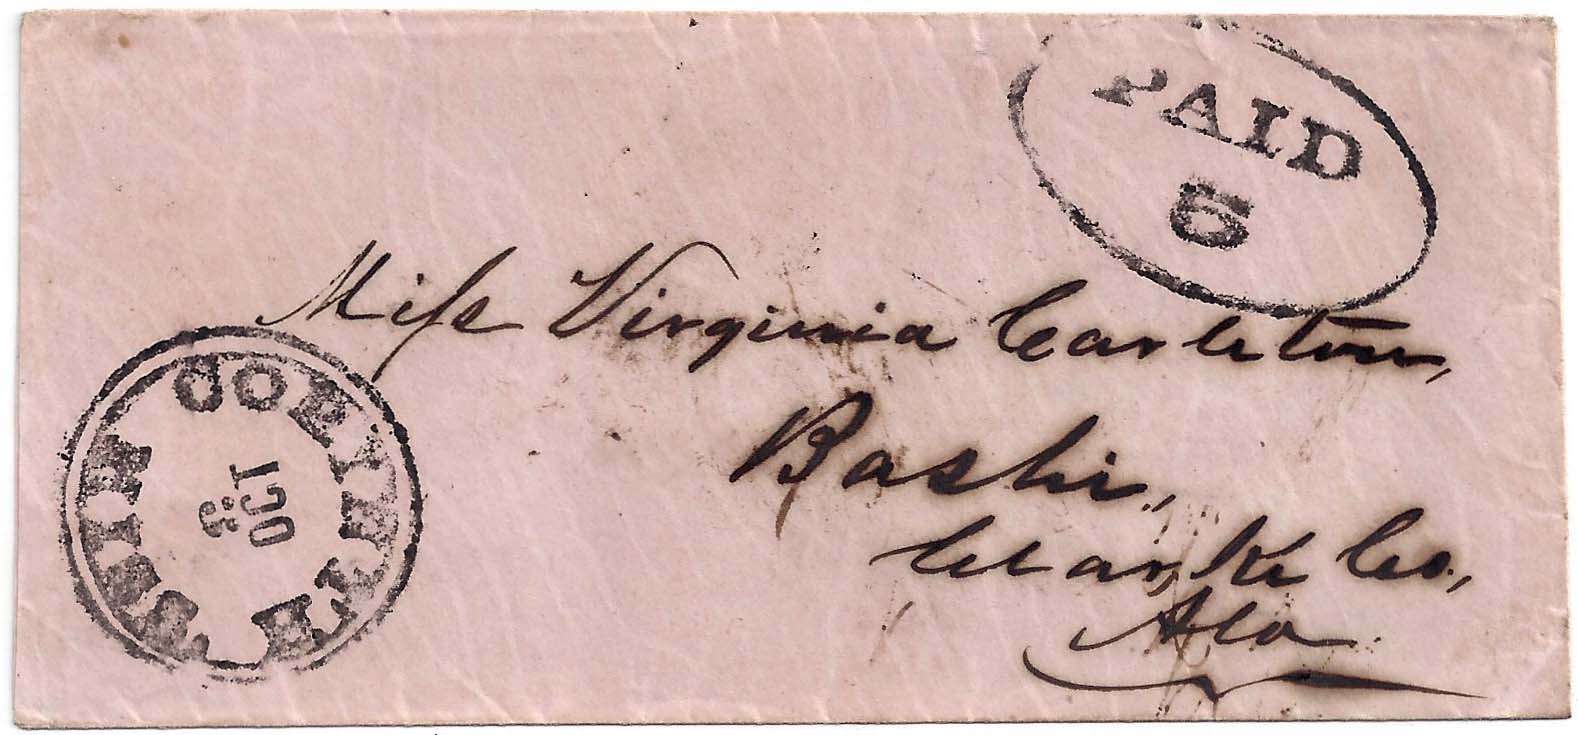 PAID
5
Miss Virginia Carleton,
Bashi,
Clarke Co.,
Ala
CORINTH MISS.
OCT
3